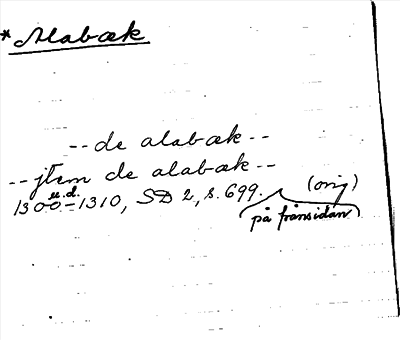 *Alabæk
--de alabæk--
--jtem de alabæk--
u.d.
1300-1310, SD 2, s. 699. (orig)
på frånsidan